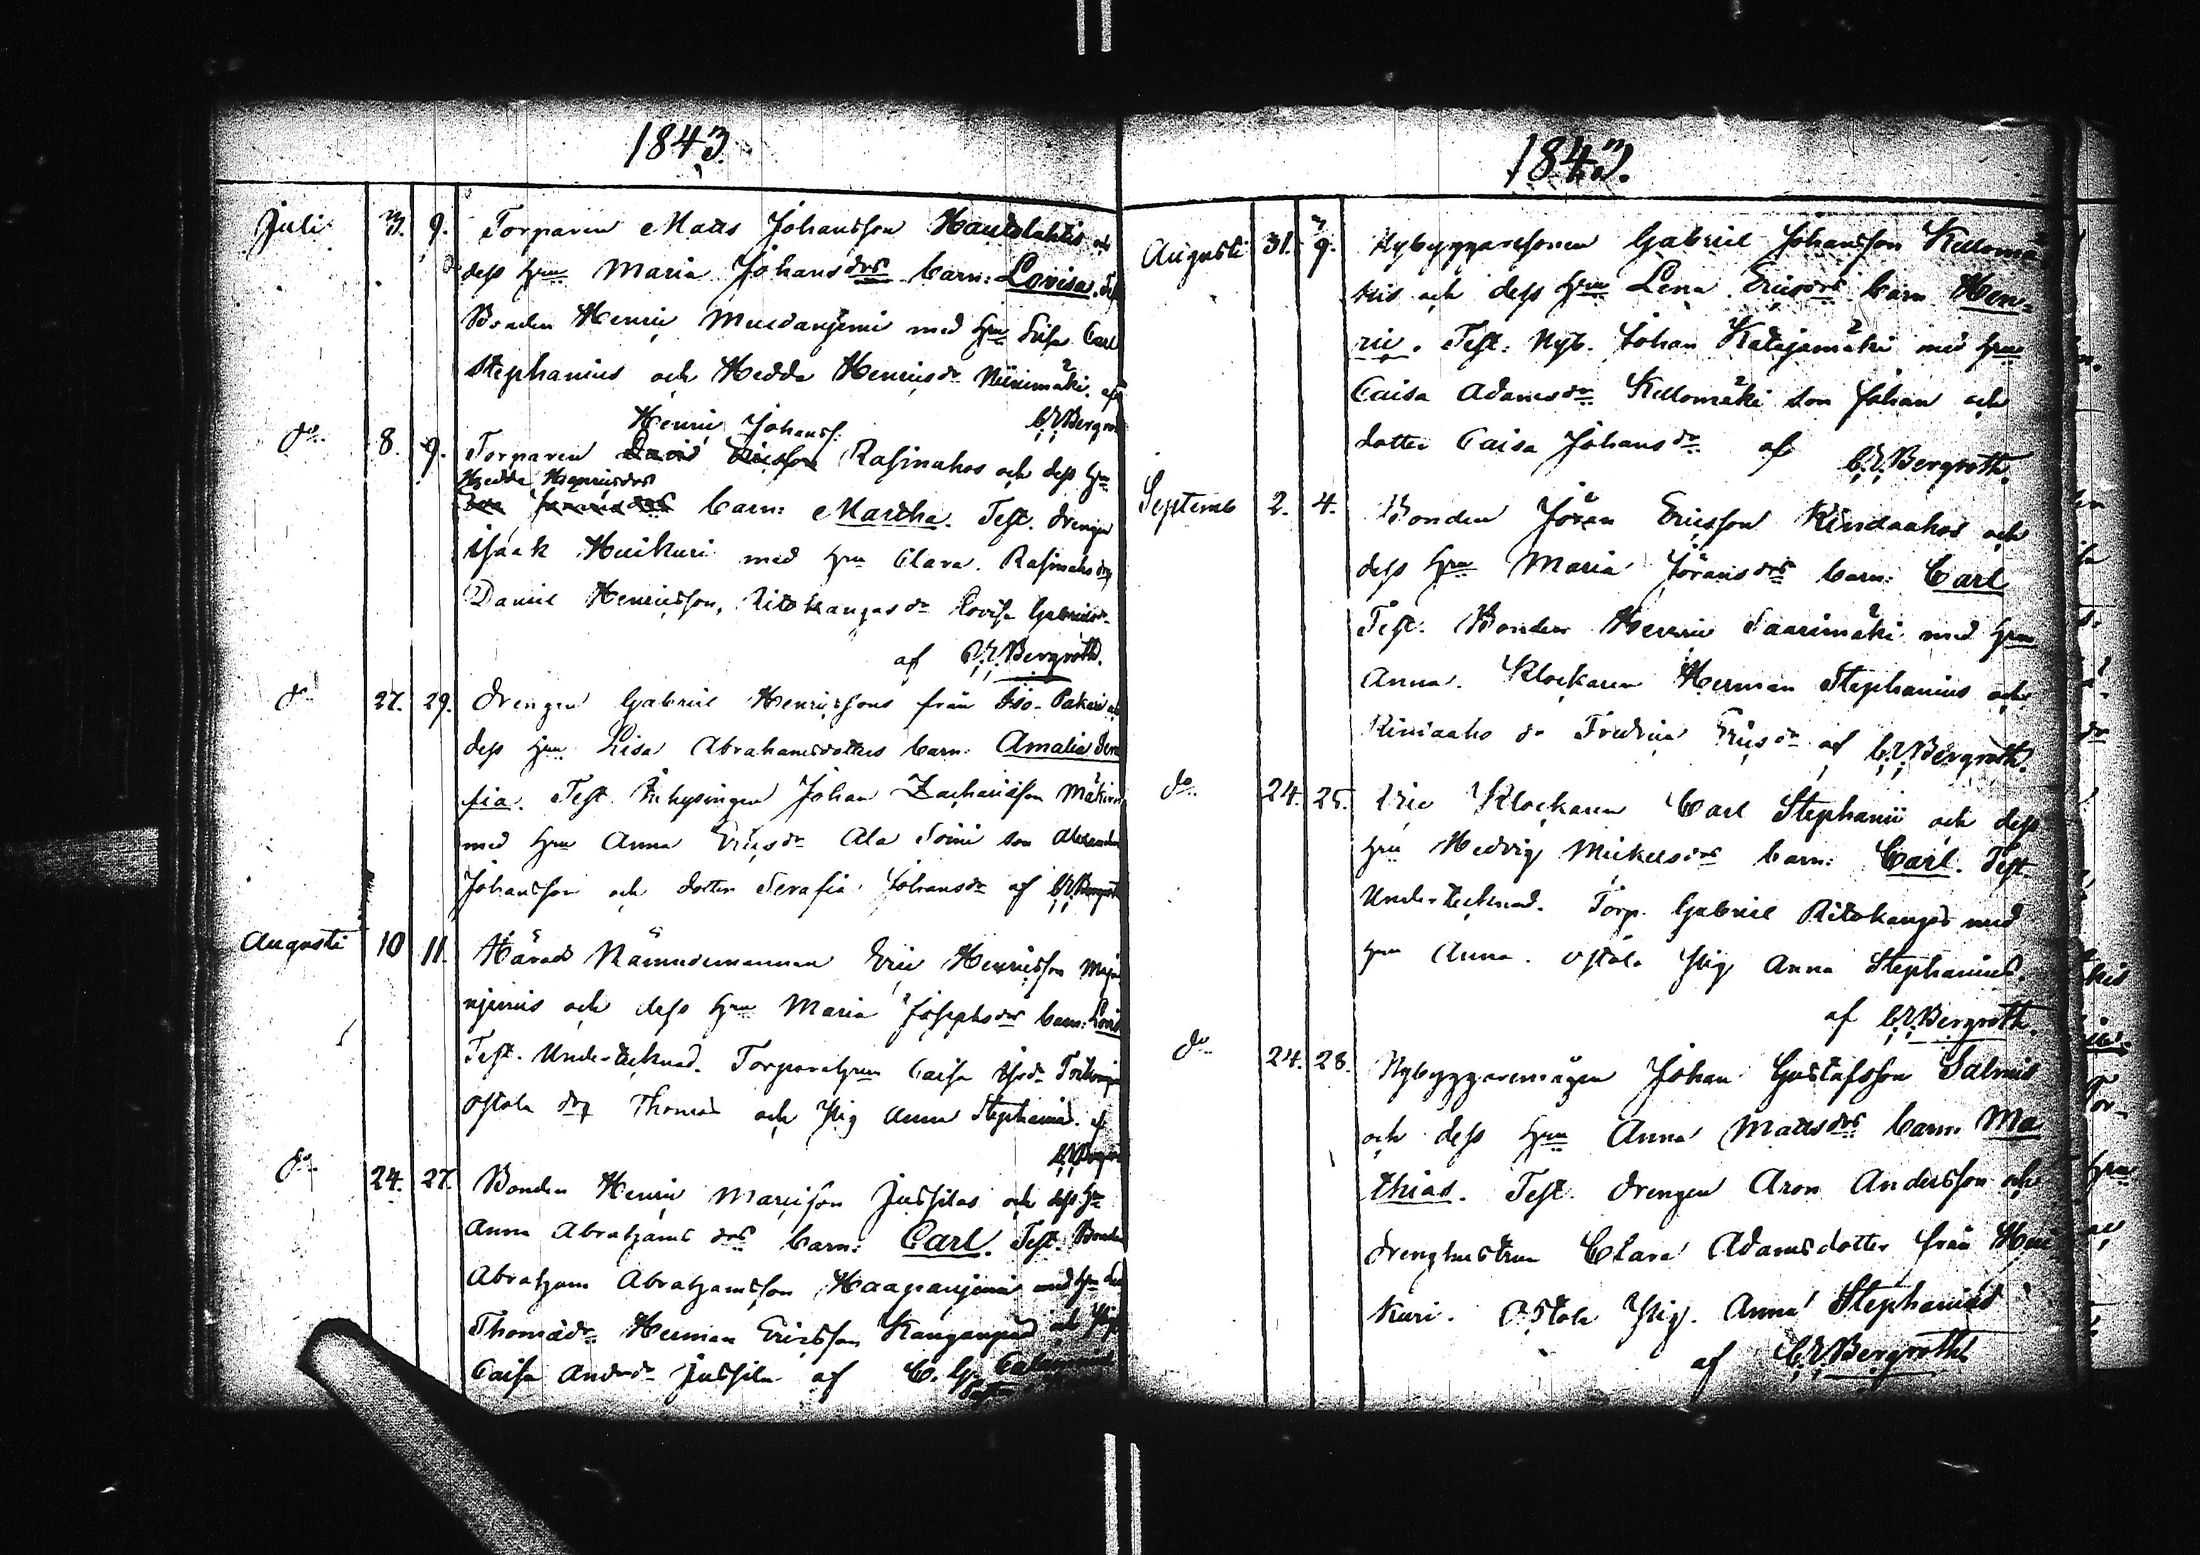 1843
Juli 3. 9. Torparen Matts Johansson Hautolahtis och
dess Hru Maria Johansdrs barn: Lovisa. Test
Bonden Henric Mustanjemi med Hru Lisa. Carl
Stephanius och Hedda Henricsdr Niinimäki. af
C.E. Bergroth
Henric Johanss.
do 8. 9. Torparen David Ericsson Rasinahos och dess Hru
Hedda Henricsdrs
barn: Martha. Test. Drengen
Isaak Huikuri med Hru Clara. Rasinaho drg
Daniel Henricsson, Ritokangas dr Lovisa Gabrielsdr
af C.E. Bergroth.
do 27. 29. Drengen Gabriel Henricssons från Iso-Pakari och
dess Hru Lisa Abrahamsdotters barn: Amalia Sera
fia. Test. Inhysingen Johan Zacharisson
med Hru Anna Ericsdr Ala Soini son Alexander
Johansson och dotter Serafia Johansdr af C.E. Bergroth
Augusti 10 11. Härads Nämndemannen Eric Henricsson
njemis och dess Hru Maria Josephsdrs barn: Lovis
Test. Undertecknad. Torparehru Caisa
Ostola drg Thomas och Pig Anna Stephanius. af
C.E. Bergroth
do 24. 27. Bonden Henric Maricson Jussilas och dess Hr
Anna Abrahams drs barn: Carl. Test: Bonden
Abraham Abrahamsson Haapanjemi med Hru
Thomasdr Herman Ericsson Kangas och Pig
Caisa Andersdr Jussila af C. G. Calamnius
1843.
Augusti 31. 3/9. Nybyggaresonen Gabriel Johansson Kellomä
kis och dess Hru Lena Ericsdrs barn Hen-
ric. Test: Nyb. Johan Katajamäki med Hru
Caisa Adamsdr Kellomäki son Johan och
dotter Caisa Johansdr af C.E. Bergroth.
Septemb 2. 4. Bonden Jöran Ericsson Kindaahos och
dess Hru Maria Jöransdrs barn: Carl
Test: Bonden Henric Saarimäki med Hru
Anna. Klockaren Herman Stephanius och
Kindaaho dr Fredrica Ericsdr af C.E. Bergroth.
do 24. 25. Vice Klockaren Carl Stephanii och dess
Hru Hedvig Mickelsdrs barn: Carl. Test
Undertecknad. Torp. Gabriel Ritokangas med
Hru Anna. Ostola Pig Anna Stephanius.
af C.E. Bergroth.
do 24. 28. Nybyggaremågen Johan Gustafsson Salmis
och dess Hru Anna Mattsdrs barn: Ma
thias. Test. Drengen Aron Andersson och
drenghustrun Clara Adamsdotter från Hui
kuri. Ostola Pig. Anna Stephanius
af C.E. Bergroth